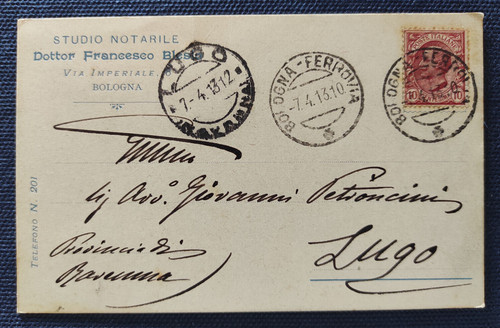 STUDIO NOTARILE
Dottor Francesco
VIA IMPERIALE,
BOLOGNA
LUGO
7-4.13.12
(RAVENNA)
BOLOGNA-FERROVIA
-7.4.13.10
POSTE ITALIANE
10 10
BOLOGNA FERROVIA
Avv. Giovanni Petroncini
Lugo
Provincia di
Ravenna
TELEFONO N. 201